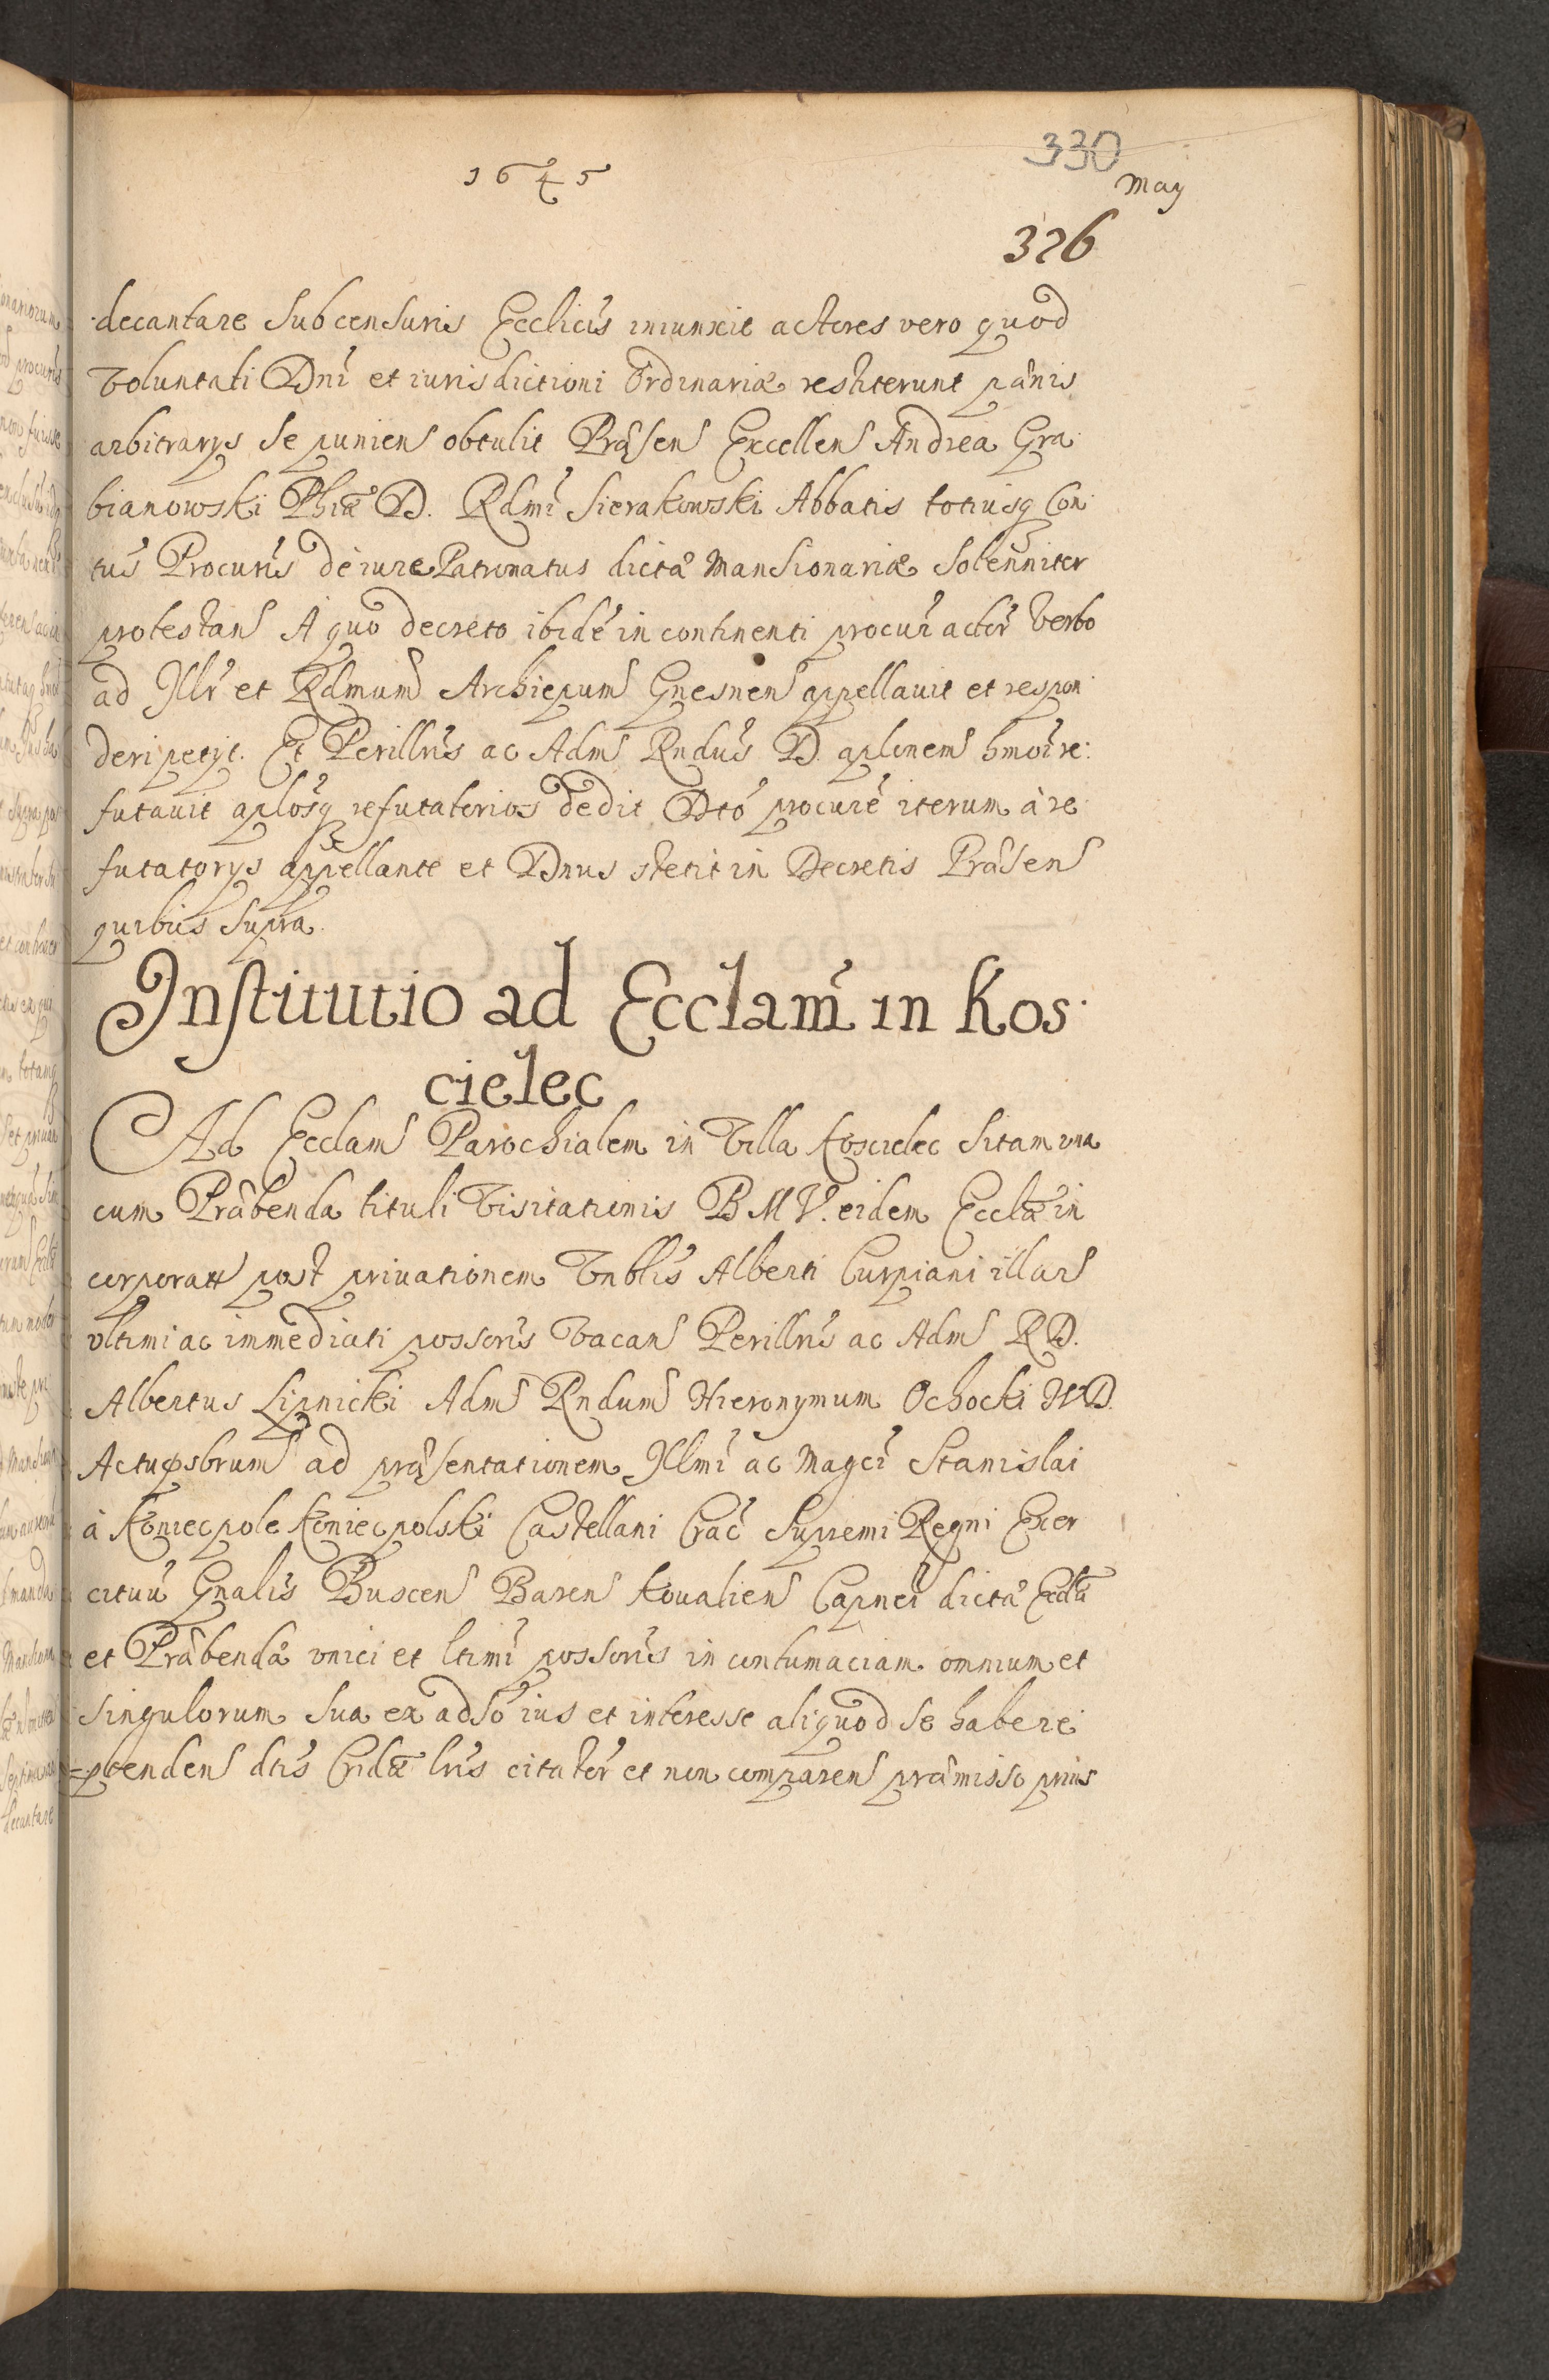 1645
330
May
326
decantare sub censuris Ecclicis iniunxit actores vero quod
Voluntati Dni et iurisdictioni Ordinariæ restiterunt pænis
arbitrarys se puniens obtulit Præsen Excellen Andrea Gra
bianowski Phiæ D. Rdmi Sierakowski Abbatis totiusq Con
tus Procuris de iure Patronatus dictæ Mansionariæ Solenniter
protestan A quo decreto ibidé in continenti procur actor verbo
ad Illr et Rdmum Archiepum Gnesnen appellauit et respon
deri petyt. Et Perillris ac Adm Rndus D. aplonem hmoi re:
futauit aplosq refutatorios dedit Dto procure iterum à re
futatorys appellante et Dnus stetit in Decretis Præsen
quibus supra.
Institutio ad Ecclam in Kos
cielec
Ad Ecclam Parochialem in Villa Koscielec sitam una
cum Præbenda tituli Visitationis B M V. eidem Ecclæ in
corporatt post priuationem Vnblis Alberti Curpiani illar
vltimi ac immediati possoris Vacan Perillris ac Adm R D.
Albertus Lipnicki Adm Rndum Hieronymum Ochocki IVD.
Actupsbrum ad præsentationem Illmi ac Magci Stanislai
à Koniecpole Koniecpolski Castellani Crac Supremi Regni Exer
cituu Gnalis Buscen Baren Koualien Capnei dictæ Ecclæ
et Præbendæ vnici et ltimi possoris in contumaciam omnium et
singulorum sua ex adso ius et interesse aliquod se habere
ptenden dtis Cridæ lris citator et non comparen præmisso prius